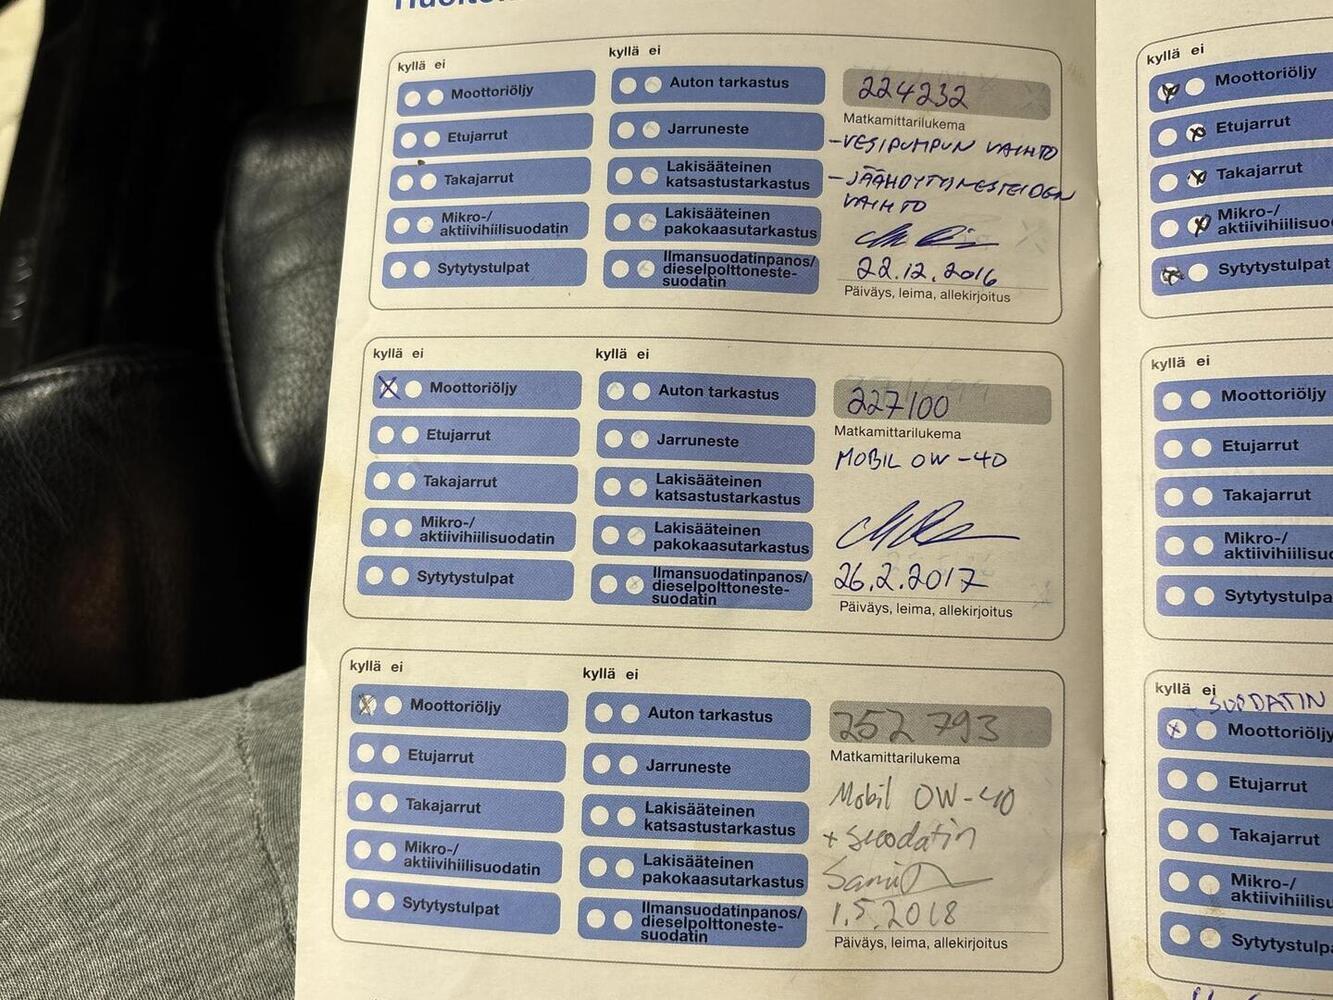 kyllä ei
kyllä ei
Moottoriöljy
Etujarrut
Takajarrut
Mikro-/
aktiivihiilisuodatin
Sytytystulpat
Auton tarkastus
Jarruneste
Lakisääteinen
katsastustarkastus
Lakisääteinen
pakokaasutarkastus
Ilmansuodatinpanos/
dieselpolttoneste-
suodatin
224232
Matkamittarilukema
-VESIPUMPUN VAIHTO
-JÄÄHDYTYNESTEIDEN
VAIHTO
22.12.2016
Päiväys, leima, allekirjoitus
kyllä ei
kyllä ei
X Moottoriöljy
Etujarrut
Takajarrut
Mikro-/
aktiivihiilisuodatin
Sytytystulpat
Auton tarkastus
Jarruneste
Lakisääteinen
katsastustarkastus
Lakisääteinen
pakokaasutarkastus
Ilmansuodatinpanos/
dieselpolttoneste-
suodatin
227100
Matkamittarilukema
MOBIL 0W-40
26.2.2017
Päiväys, leima, allekirjoitus
kyllä ei
kyllä ei
X Moottoriöljy
Etujarrut
Takajarrut
Mikro-/
aktiivihiilisuodatin
Sytytystulpat
Auton tarkastus
Jarruneste
Lakisääteinen
katsastustarkastus
Lakisääteinen
pakokaasutarkastus
Ilmansuodatinpanos/
dieselpolttoneste-
suodatin
252 793
Matkamittarilukema
Mobil 0W-40
+ suodatin
Sami
1.5.2018
Päiväys, leima, allekirjoitus
kyllä ei
X Moottoriöljy
X Etujarrut
X Takajarrut
X Mikro-/
aktiivihiilisuo
X Sytytystulpat
kyllä ei
Moottoriöljy
Etujarrut
Takajarrut
Mikro-/
aktiivihiilisuo
Sytytystulpa
kyllä ei
+ SUODATIN
X Moottoriöljy
Etujarrut
Takajarrut
Mikro-/
aktiivihiilisu
Sytytystulp